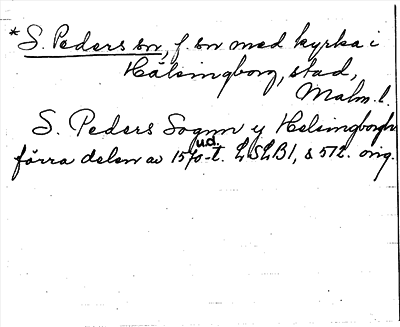 * S. Peders sn, f. sn med kyrka i
Hälsingborg, stad,
Malm. l.
S. Peders Sognn y Helsingborgh
u.d.
förra delen av 1570-t. LSLB1, s 572. orig.